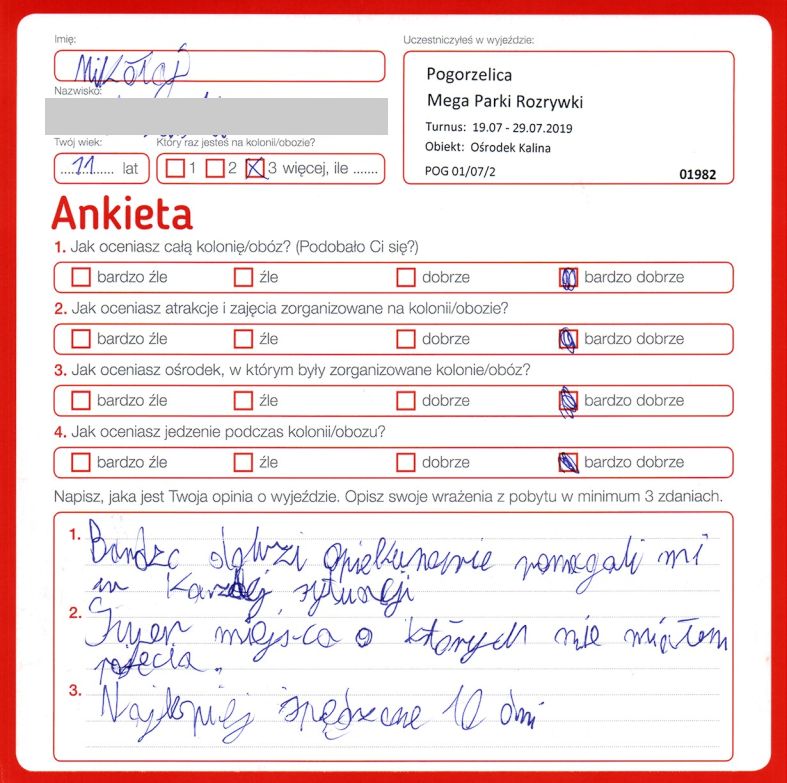 Imię:
Mikołaj
Uczestniczyłeś w wyjeździe:
Pogorzelica
Mega Parki Rozrywki
Turnus: 19.07 - 29.07.2019
Obiekt: Ośrodek Kalina
POG 01/07/2
01982
Nazwisko:
Twój wiek:
11 lat
Który raz jesteś na kolonii/obozie?
1 2 3 więcej, ile .......
Ankieta
1. Jak oceniasz całą kolonię/obóz? (Podobało Ci się?)
bardzo źle źle dobrze bardzo dobrze
2. Jak oceniasz atrakcje i zajęcia zorganizowane na kolonii/obozie?
bardzo źle źle dobrze bardzo dobrze
3. Jak oceniasz ośrodek, w którym były zorganizowane kolonie/obóz?
bardzo źle źle dobrze bardzo dobrze
4. Jak oceniasz jedzenie podczas kolonii/obozu?
bardzo źle źle dobrze bardzo dobrze
Napisz, jaka jest Twoja opinia o wyjeździe. Opisz swoje wrażenia z pobytu w minimum 3 zdaniach.
1. Bardzo dobrzi opiekunowie pomagali mi
w każdej sytuacji
2. miejsca o których nie miałem
pojęcia.
3. Najlepiej spędzone 10 dni